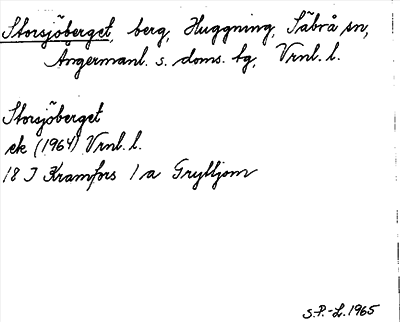 Storsjöberget, berg, Huggning, Säbrå sn,
Ångermanl. s. doms. tg, Vrnl. l.
Storsjöberget
ek (1964) Vrnl. l.
18 I Kramfors 1 a Grylljom
S.P.-L. 1965